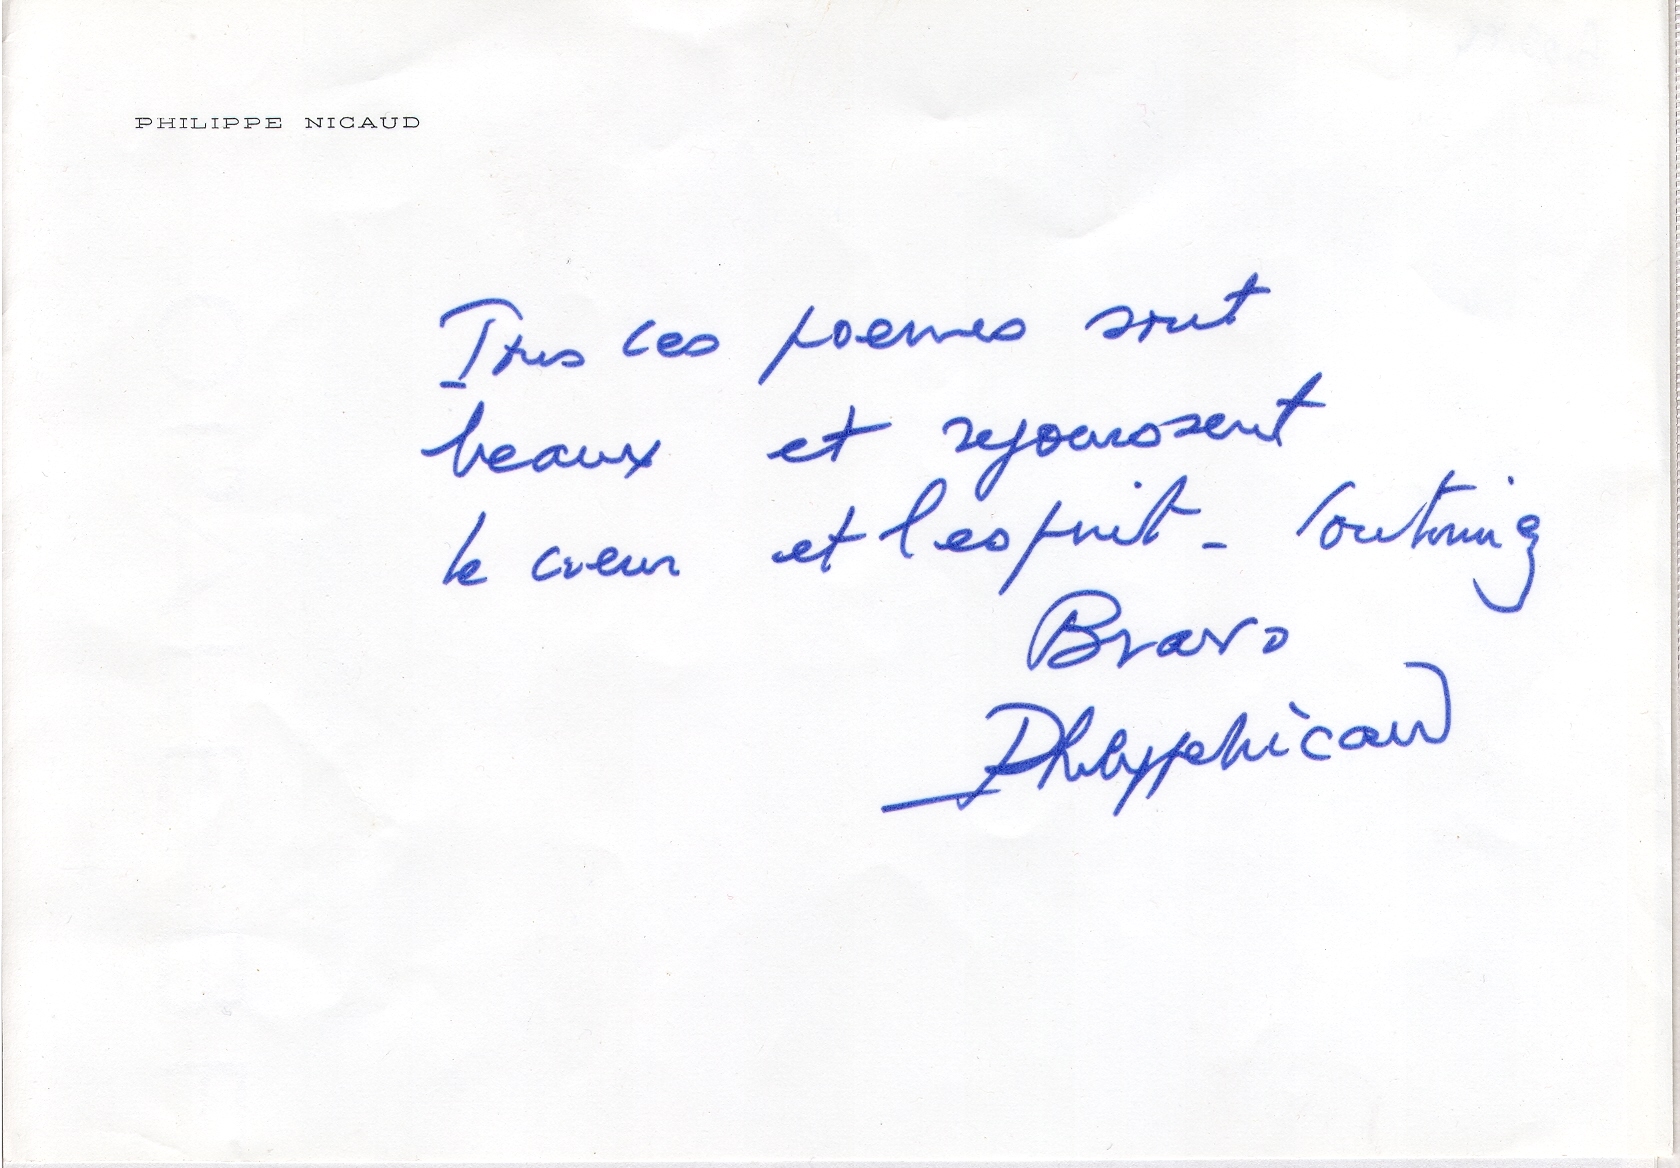 PHILIPPE NICAUD
Tous ces poemes sont
beaux et rejouissent
le coeur et l'esprit - Continuez
Bravo
Philippe Nicaud